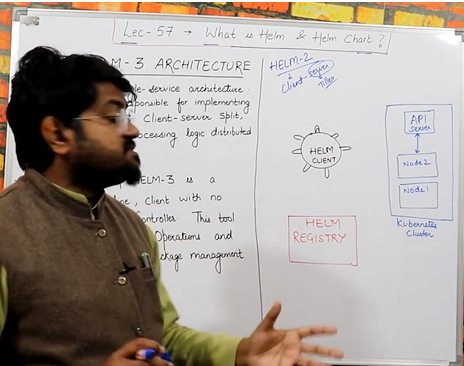 Lec-57 → What is Helm & Helm Chart?
M-3 ARCHITECTURE
le-service architecture
ponsible for implementing
Client-server split,
rocessing logic distributed
HELM-3 is a
ce, client with no
ontroller. This tool
Operations and
ckage management
HELM-2
Client-Server
Tiller
HELM
CLIENT
HELM
REGISTRY
API
Server
Node2
Node1
Kubernetes
Cluster